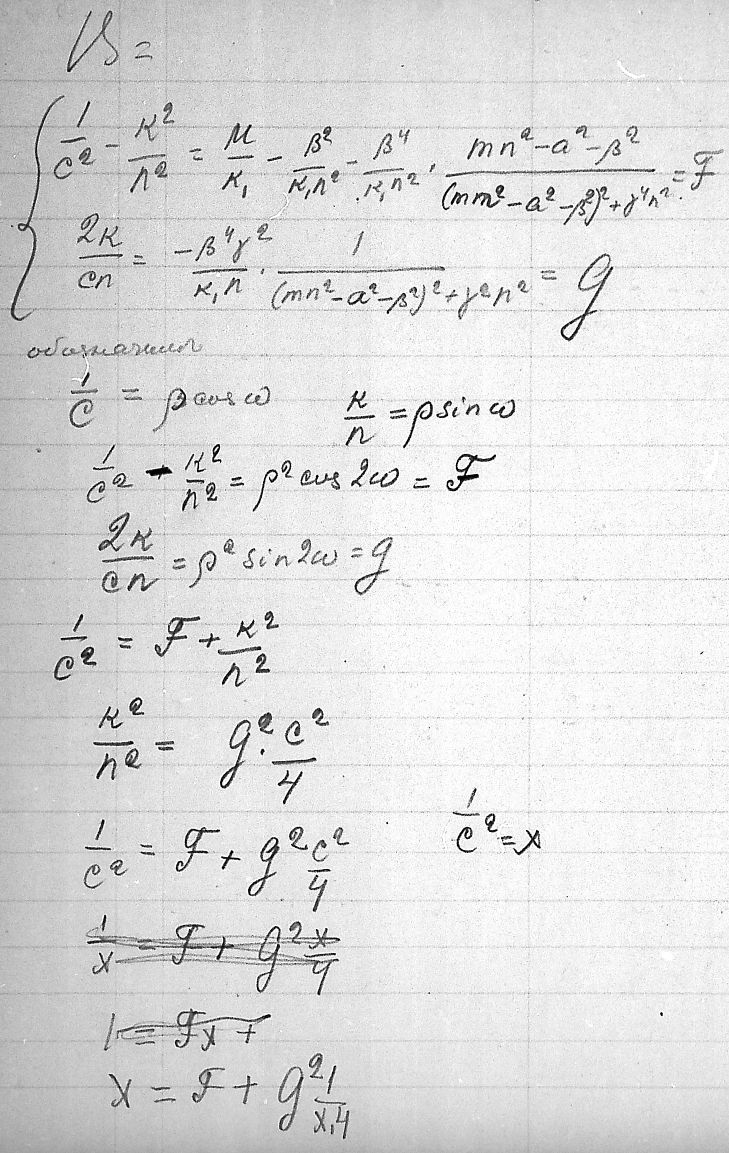 V =
1/c² - κ²/n² = M/κ₁ - β²/κ₁n² - β⁴/κ₁n² · (mn² - a² - β²)/((mn² - a² - β²)² + γ⁴n²) = F
2κ/cn = -β⁴γ²/κ₁n · 1/((mn² - a² - β²)² + γ²n²) = G
обозначим
1/c = ρ cos ω    κ/n = ρ sin ω
1/c² - κ²/n² = ρ² cos 2ω = F
2κ/cn = ρ² sin 2ω = G
1/c² = F + κ²/n²
κ²/n² = G² · c²/4
1/c² = F + G² c²/4    1/c² = x
1/x = F + G² x/4
1 = Fx +
x = F + G² 1/x·4